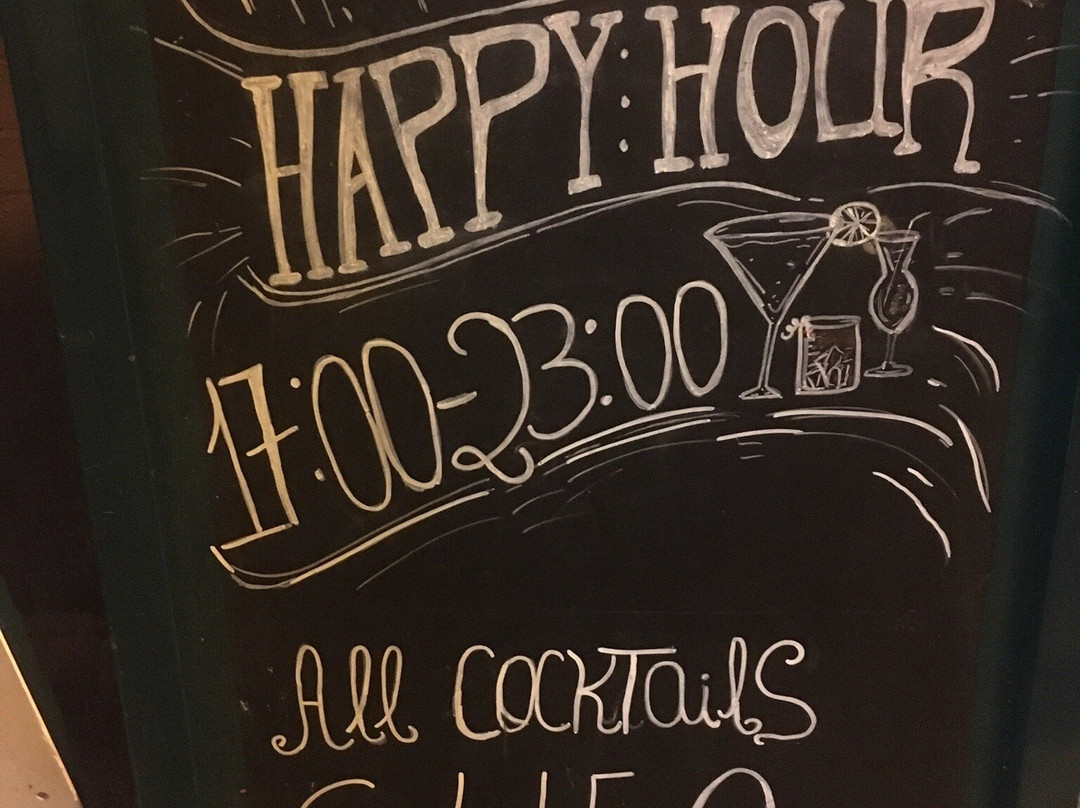 HAPPY:HOUR
17:00-23:00
All COCKTails